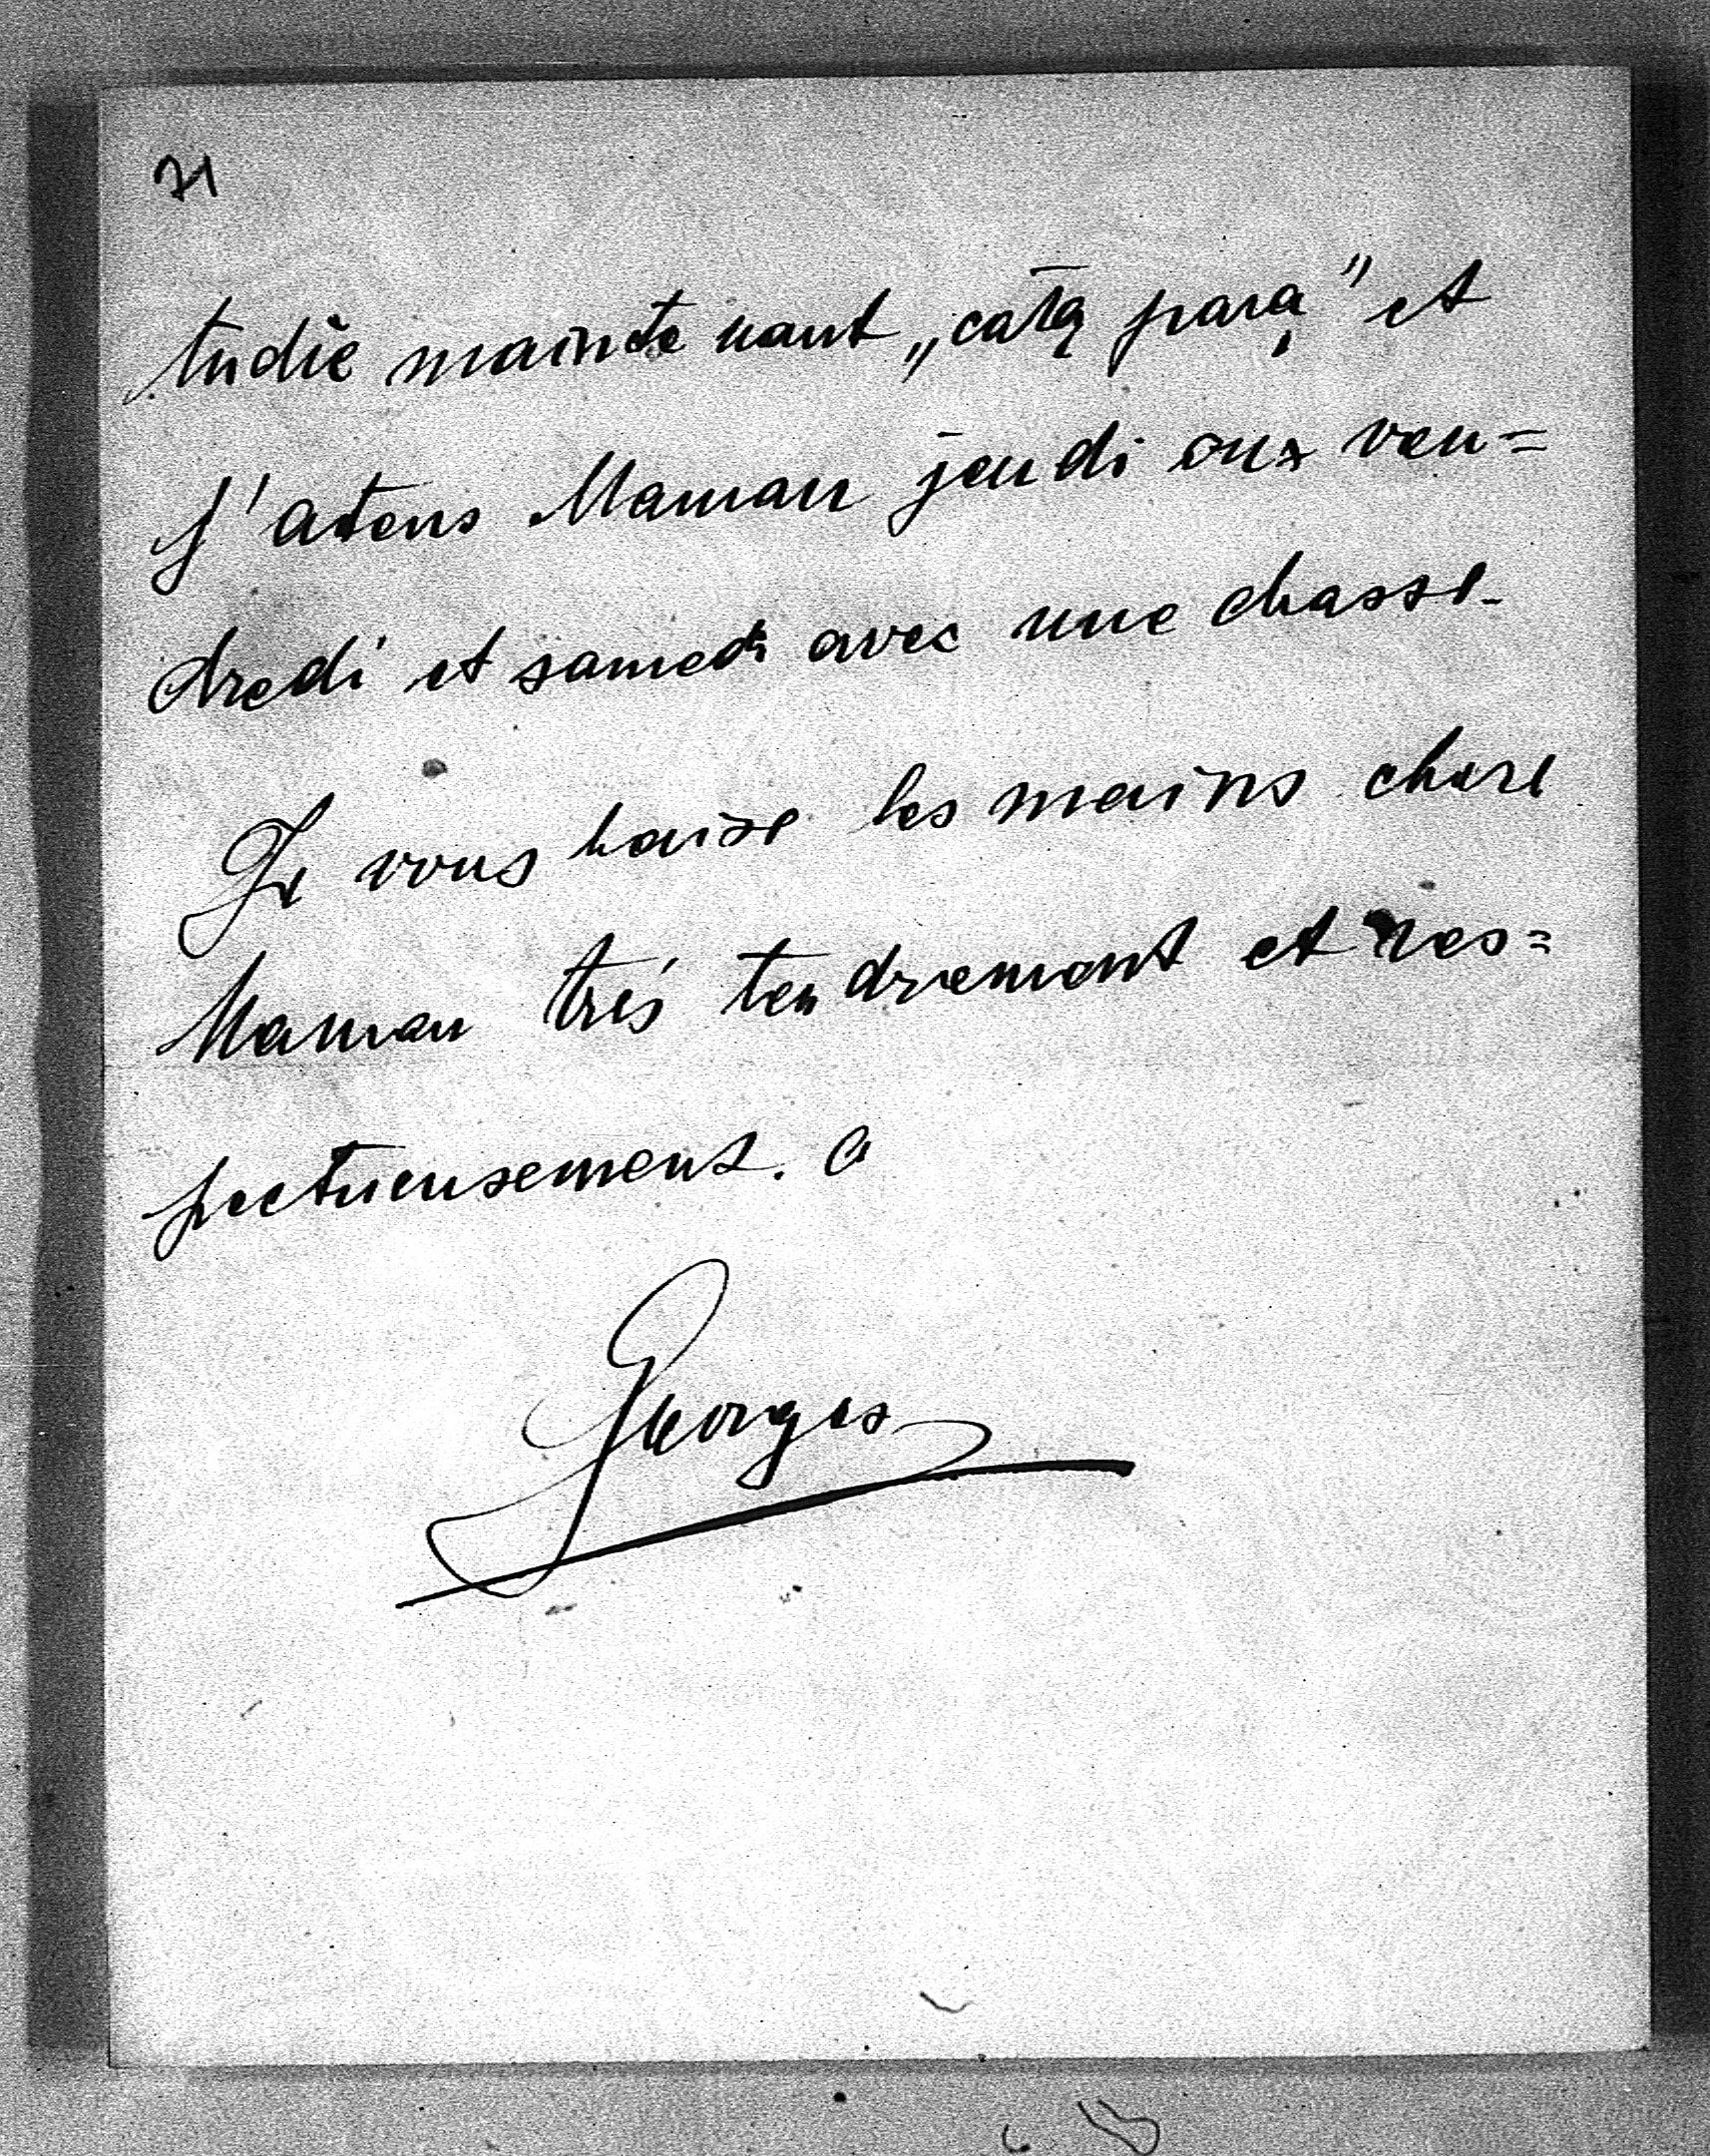 71
tudie maintenant „catą pară" et
J'atens Maman jeudi oux ven=
dredi et samedi avec une chasse.
Je vous baise les mains chere
Maman trés tendrement et res=
pectueusement.
Georges